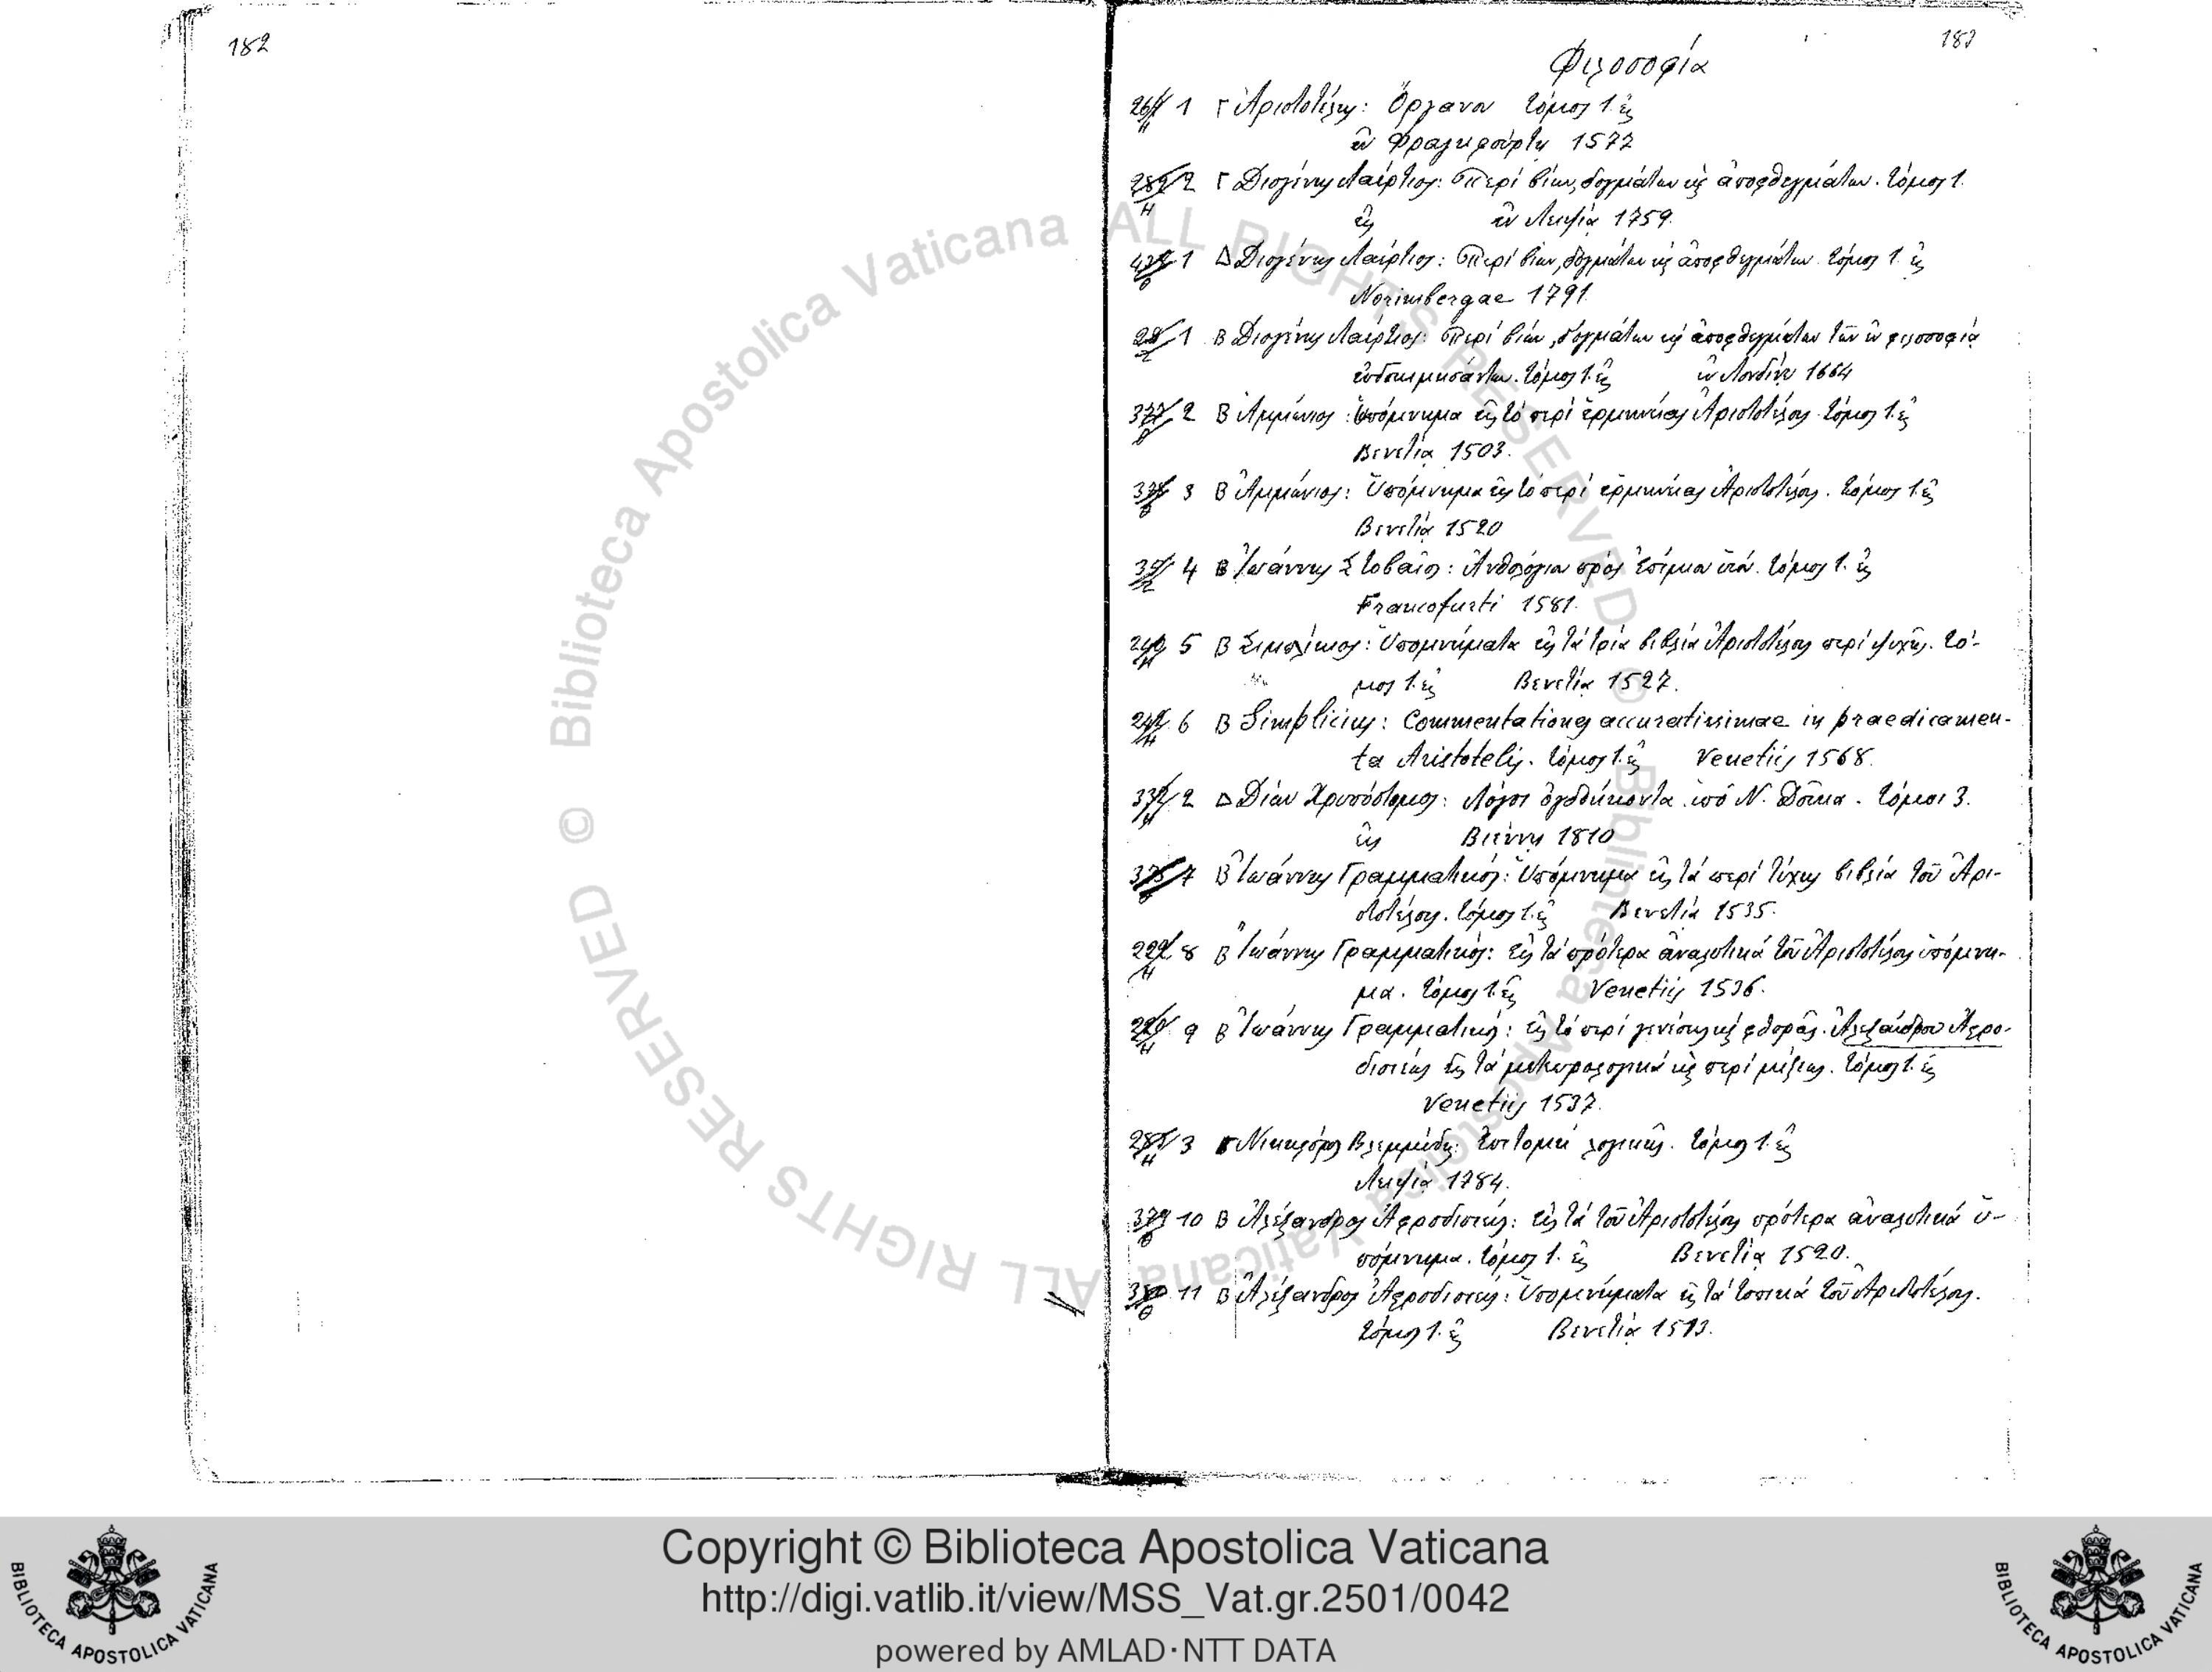 182
183
Φιλοσοφία
1 Γ Ἀριστοτέλης: Ὄργανον τόμος 1. εἰς
ἐν Φραγκφούρτῃ 1577
2 Γ Διογένης Λαέρτιος: Περί βίων, δογμάτων καὶ ἀποφθεγμάτων. τόμος 1.
εἰς ἐν Λειψίᾳ 1759.
1 Δ Διογένης Λαέρτιος: Περί βίων, δογμάτων καὶ ἀποφθεγμάτων. τόμος 1. εἰς
Norimbergae 1791.
1 Β Διογένης Λαέρτιος: Περί βίων, δογμάτων καὶ ἀποφθεγμάτων τῶν ἐν φιλοσοφίᾳ
εὐδοκιμησάντων. τόμος 1. εἰς ἐν Λονδίνῳ 1664
2 Β Ἀμμώνιος: Ὑπόμνημα εἰς τό περί ἑρμηνείας Ἀριστοτέλους. τόμος 1. εἰς
Βενετίᾳ 1503.
3 Β Ἀμμώνιος: Ὑπόμνημα εἰς τό περί ἑρμηνείας Ἀριστοτέλους. τόμος 1. εἰς
Βενετίᾳ 1520
4 Β Ἰωάννης Στοβαῖος: Ἀνθολόγιον πρός Ἐπίμιον. τόμος 1. εἰς
Francofurti 1581.
5 Β Σιμπλίκιος: Ὑπομνήματα εἰς τά τρία βιβλία Ἀριστοτέλους περί ψυχῆς. τό-
μος 1. εἰς Βενετίᾳ 1527.
6 Β Simplicius: Commentationes accuratissimae in praedicamen-
ta Aristotelis. τόμος 1. εἰς Venetiis 1568.
2 Δ Δίων Χρυσόστομος: Λόγοι ὀγδοήκοντα ὑπό Ν. Δούκα. τόμοι 3.
εἰς Βιέννῃ 1810
7 Β Ἰωάννης Γραμματικός: Ὑπόμνημα εἰς τά περί τύχης βιβλία τοῦ Ἀρι-
στοτέλους. τόμος 1. εἰς Βενετίᾳ 1535.
8 Β Ἰωάννης Γραμματικός: Εἰς τά πρότερα ἀναλυτικά τοῦ Ἀριστοτέλους ὑπόμνη-
μα. τόμος 1. εἰς Venetiis 1536.
9 Β Ἰωάννης Γραμματικός: εἰς τό περί γενέσεως καὶ φθορᾶς. Ἀλεξάνδρου Ἀφρο-
δισιέως εἰς τά μετεωρολογικά καὶ περί μίξεως. τόμος 1. εἰς
Venetiis 1537.
3 Γ Νικηφόρος Βλεμμύδης: Ἐπιτομή λογικῆς. τόμος 1. εἰς
Λειψίᾳ 1784.
10 Β Ἀλέξανδρος Ἀφροδισιεύς: εἰς τά τοῦ Ἀριστοτέλους πρότερα ἀναλυτικά ὑ-
πόμνημα. τόμος 1. εἰς Βενετίᾳ 1520.
11 Β Ἀλέξανδρος Ἀφροδισιεύς: Ὑπομνήματα εἰς τά τοπικά τοῦ Ἀριστοτέλους.
τόμος 1. εἰς Βενετίᾳ 1513.
© Biblioteca Apostolica Vaticana ALL RIGHTS RESERVED
© Biblioteca Apostolica Vaticana ALL RIGHTS RESERVED
Copyright © Biblioteca Apostolica Vaticana
http://digi.vatlib.it/view/MSS_Vat.gr.2501/0042
powered by AMLAD·NTT DATA
BIBLIOTECA APOSTOLICA VATICANA
BIBLIOTECA APOSTOLICA VATICANA